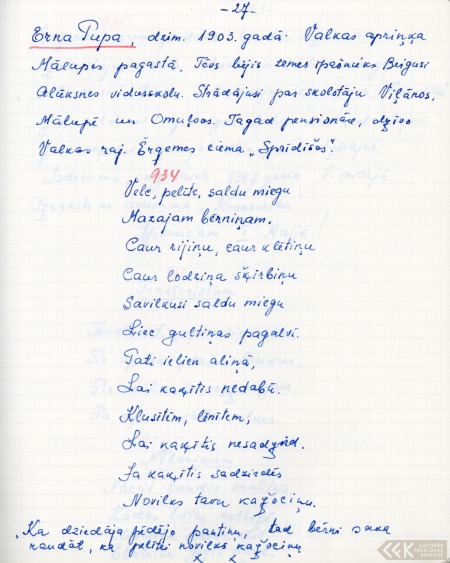 -27-
Erna Pupa, dzim. 1903. gadā Valkas apriņķa
Mālupes pagastā. Tēvs bijis zemes īpašnieks Beigusi
Alūksnes vidusskolu. Strādājusi par skolotāju Viļānos,
Mālupē un Omuļos. Tagad pensionāre, dzīvo
Valkas raj. Ērģemes ciema „Sprīdīšos".
934
Velc, pelīte, saldu miegu
Mazajam bērniņam,
Caur rijiņu, caur klētiņu
Caur lodziņa šķirbiņu
Savilkusi saldu miegu
Liec gultiņas pagalvī.
Pati ielien aliņā,
Lai kaķītis nedabū.
Klusītēm, lēnītēm,
Lai kaķītis nesadzird.
Ja kaķītis sadzirdēs
Novilks tavu kažociņu.
„Ka dziedāja pēdējo pantiņu, tad bērni sāka
raudāt, ka pelītei novilks kažociņu
x x
LATVIEŠU
FOLKLORAS
KRĀTUVE